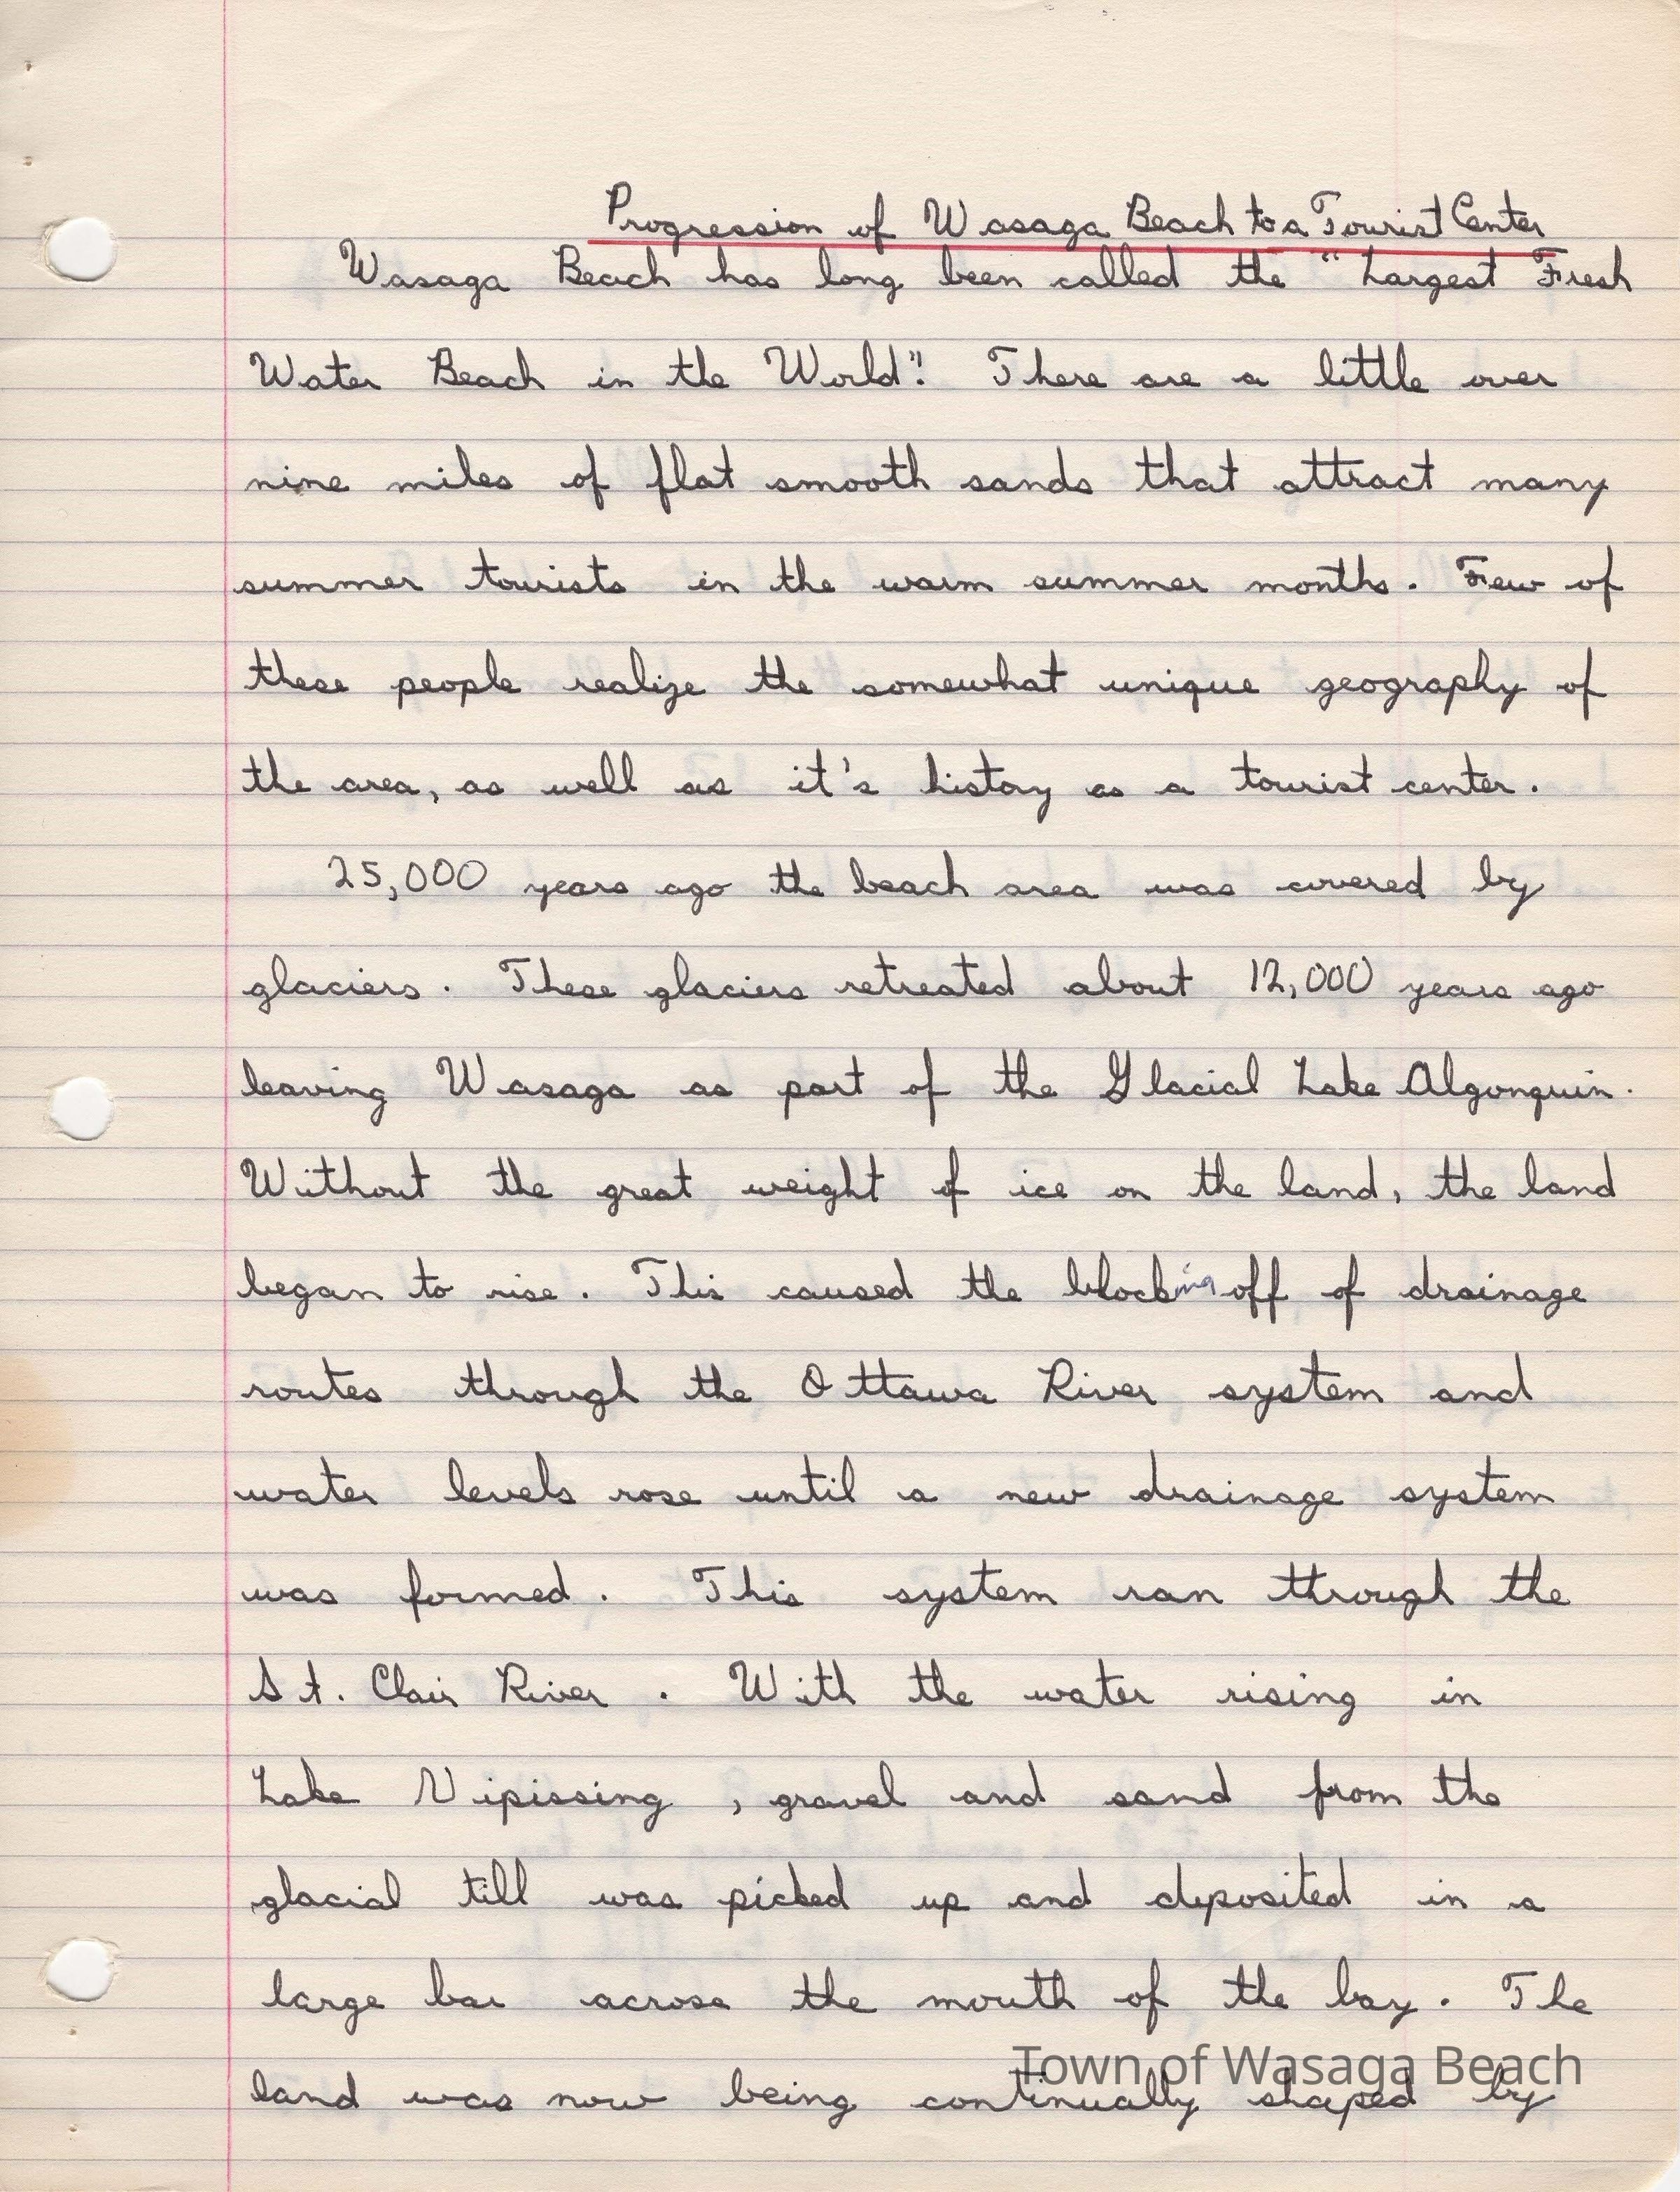 Progression of Wasaga Beach to a Tourist Center
Wasaga Beach has long been called the "Largest Fresh
Water Beach in the World". There are a little over
nine miles of flat smooth sands that attract many
summer tourists in the warm summer months. Few of
these people realize the somewhat unique geography of
the area, as well as it's history as a tourist center.
25,000 years ago the beach area was covered by
glaciers. These glaciers retreated about 12,000 years ago
leaving Wasaga as part of the Glacial Lake Algonquin.
Without the great weight of ice on the land, the land
began to rise. This caused the blocking off of drainage
routes through the Ottawa River system and
water levels rose until a new drainage system
was formed. This system ran through the
St. Clair River. With the water rising in
Lake Nipissing, gravel and sand from the
glacial till was picked up and deposited in a
large bar across the mouth of the bay. The
Town of Wasaga Beach
land was now being continually shaped by